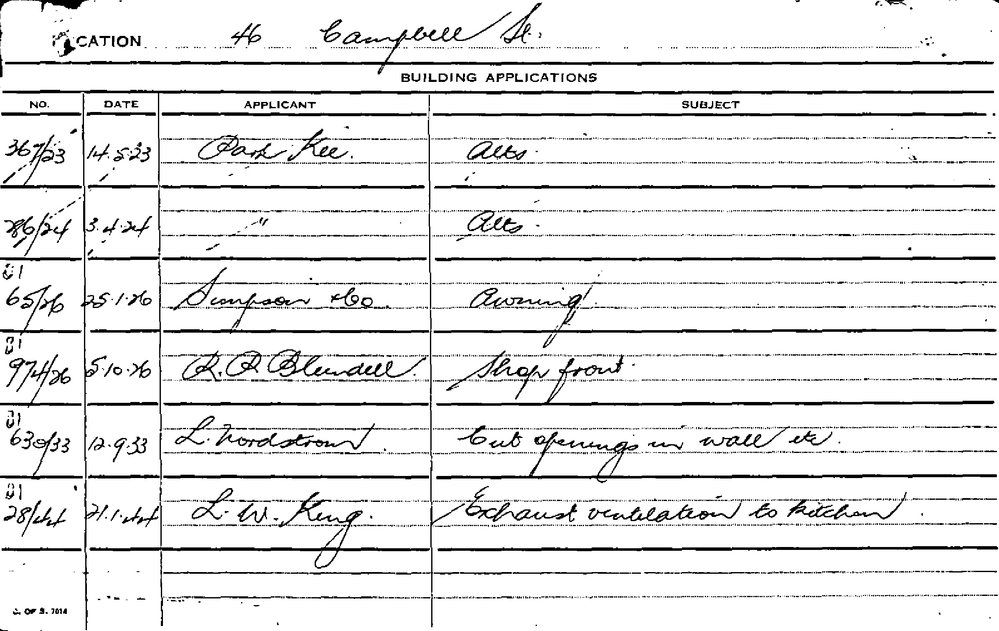 CATION 46 Campbell St.
BUILDING APPLICATIONS
NO. DATE APPLICANT SUBJECT
367/23 14.5.23 Kee. Alts.
286/24 3.4.24 " Alts.
81
65/26 25.1.26 Simpson & Co. Awning
81
974/26 5.10.26 R. P. Blundell Shop front.
81
630/33 12.9.33 L. Nordstrom. Cut openings in wall etc.
81
28/44 21.1.44 L. W. King. Exhaust ventilation to kitchen.
C. OF S. 7014